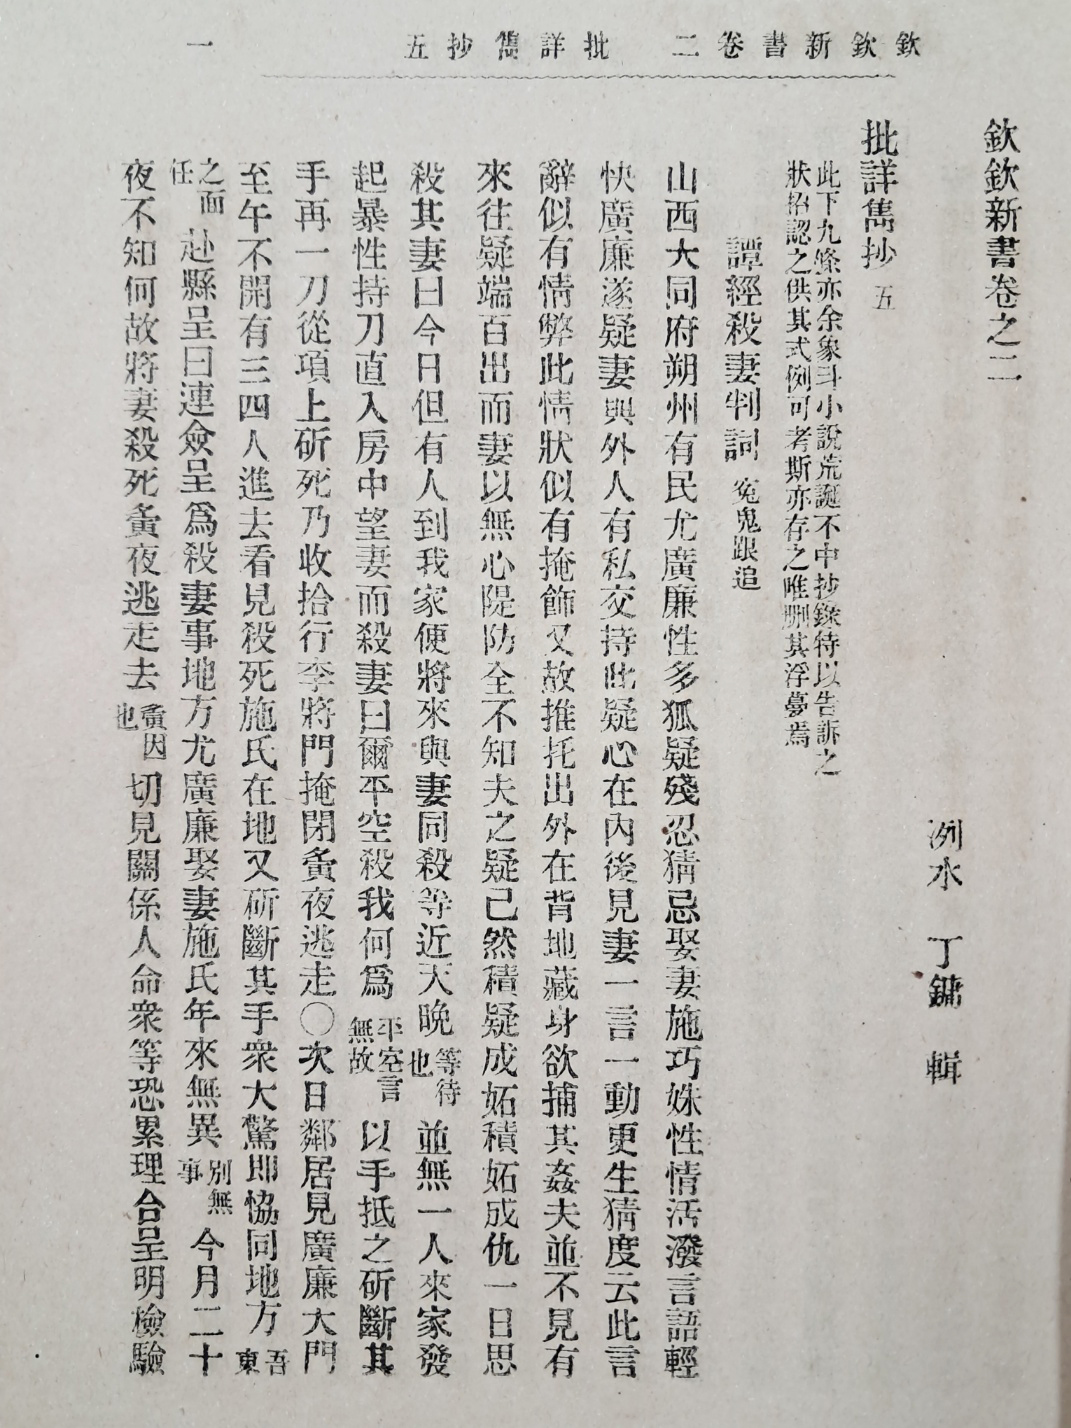 欽欽新書卷二 批詳雋抄五 一
欽欽新書卷之二
洌水 丁鏞 輯
批詳雋抄 五
此下九條亦余象斗小說荒誕不中抄錄特以告訴之
狀招認之供其式例可考斯亦存之唯刪其浮夢焉
譚經殺妻判詞 冤鬼跟追
山西大同府朔州有民尤廣廉性多狐疑殘忍猜忌娶妻施巧姝性情活潑言語輕
快廣廉遂疑妻與外人有私交持此疑心在內後見妻一言一動更生猜度云此言
辭似有情弊此情狀似有掩飾又故推托出外在背地藏身欲捕其姦夫並不見有
來往疑端百出而妻以無心隄防全不知夫之疑己然積疑成妬積妬成仇一日思
殺其妻曰今日但有人到我家便將來與妻同殺等近天晚 等待也 並無一人來家發
起暴性持刀直入房中望妻而殺妻曰爾平空殺我何爲 平空言無故 以手抵之斫斷其
手再一刀從項上斫死乃收拾行李將門掩閉夤夜逃走〇次日鄰居見廣廉大門
至午不開有三四人進去看見殺死施氏在地又斫斷其手衆大驚卽協同地方 吾東
之面任 赴縣呈曰連僉呈爲殺妻事地方尤廣廉娶妻施氏年來無異 別無事 今月二十
夜不知何故將妻殺死夤夜逃走去 夤因也 切見關係人命衆等恐累理合呈明檢驗